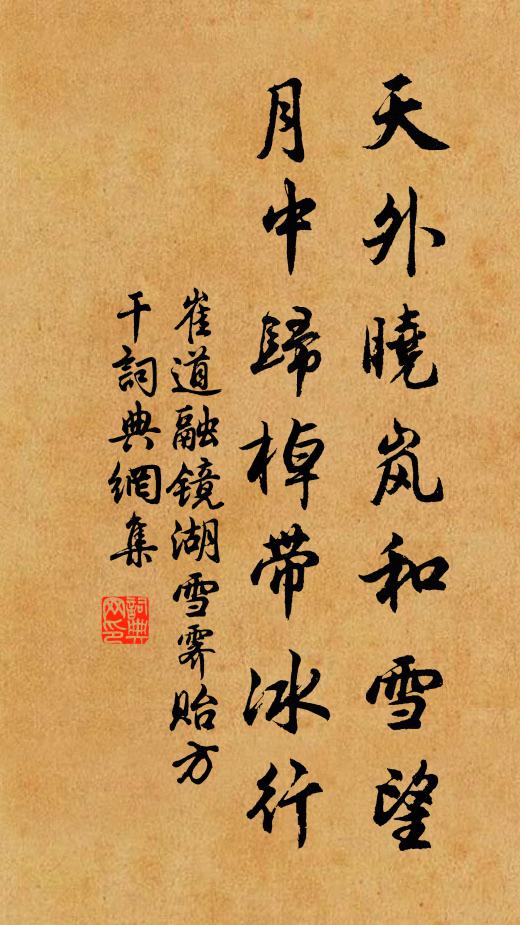 天外曉岚和雪望
月中歸棹带冰行
崔道融镜湖雪霁贻方
干詞典網集
詞典
网印